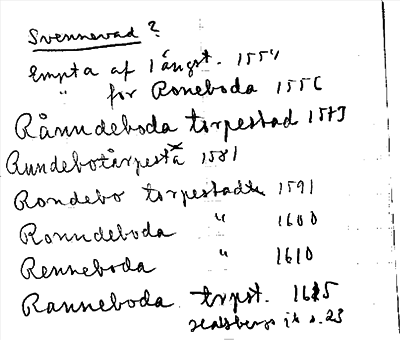 Svennevad ?
Empta af 1 ångst. 1554
" for Roneboda 1556
Rånndeboda torpestad 1573
Rundebotårpestä 1581
Rondebo torpestadh 1591
Ronndeboda " 1600
Renneboda " 1610
Ranneboda trpst. 1615
jb s. 23